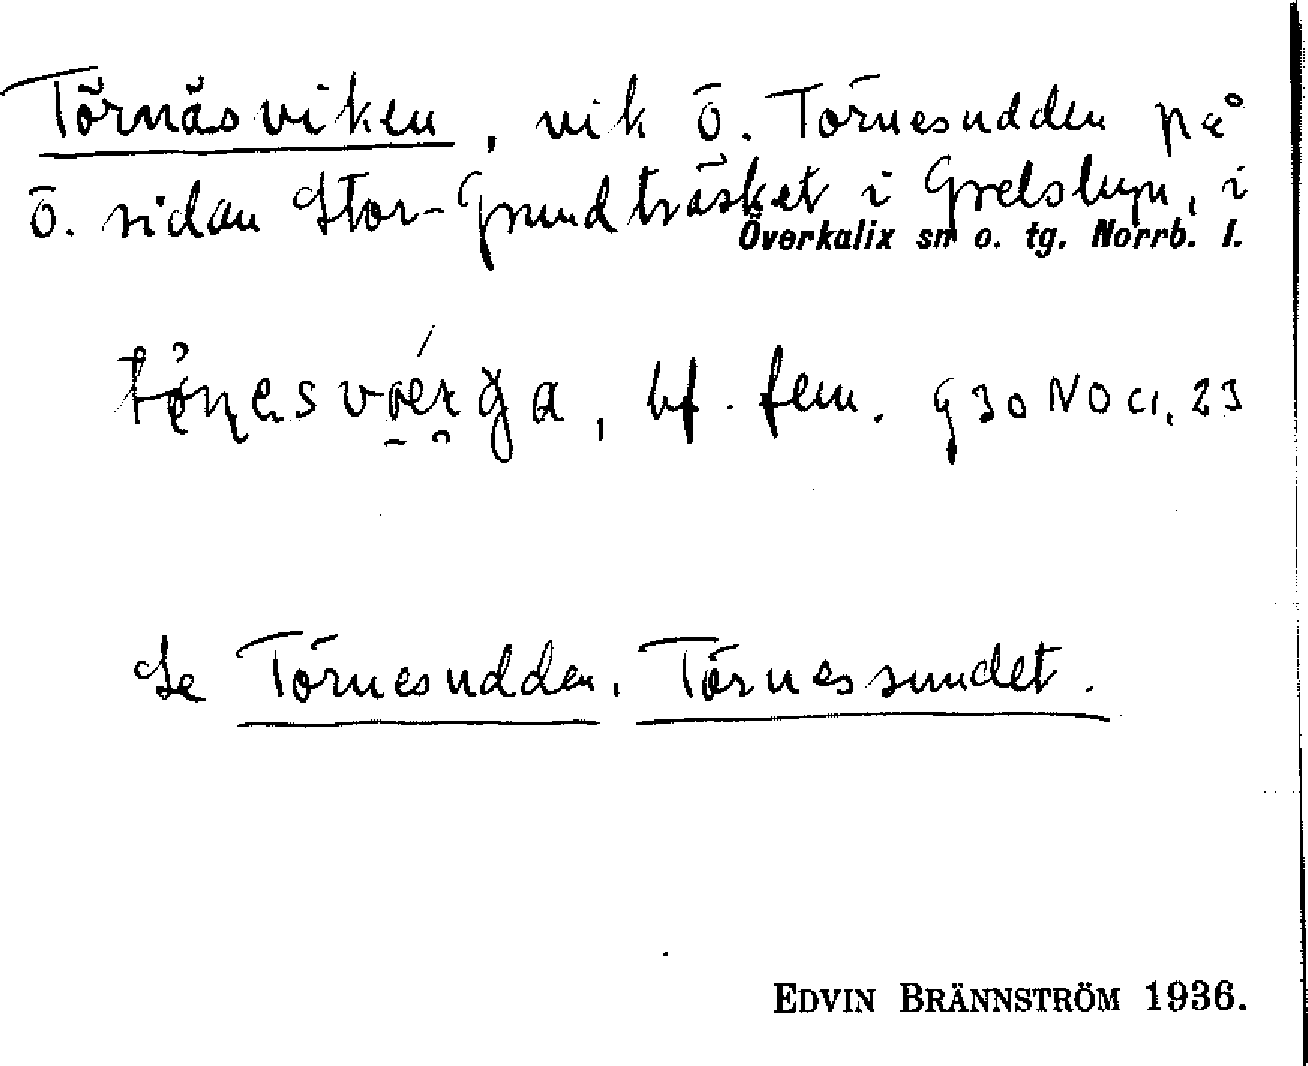 Törnäsviken, vik ö. Törnesudden på
ö. sidan Stor-Grundträsket i Grelsbyn, i
Överkalix sn o. tg. Norrb. l.
bf. fem. g 30 NO
Se Törnesudden, Törnessundet.
EDVIN BRÄNNSTRÖM 1936.